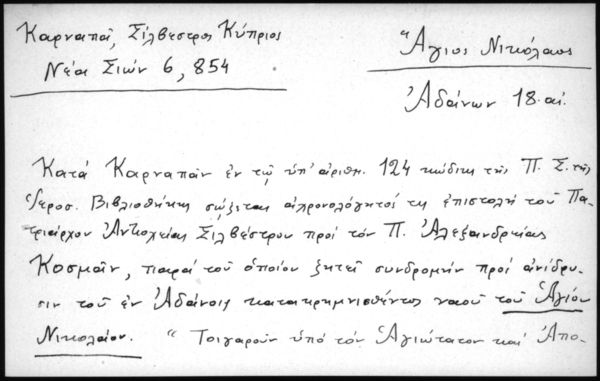 Καρναπᾶ, Σίλβεστρος Κύπριος
Νέα Σιών 6, 854
Ἅγιος Νικόλαος
Ἀδάνων 18. αἰ.
Κατά Καρναπᾶν ἐν τῷ ὑπ' ἀριθμ. 124 κώδικι τῆς Π. Σ. τῆς
Ἱεροσ. Βιβλιοθήκης σῴζεται ἀχρονολόγητός τις ἐπιστολή τοῦ Πα-
τριάρχου Ἀντιοχείας Σιλβέστρου πρός τόν Π. Ἀλεξανδρείας
Κοσμᾶν, παρά τοῦ ὁποίου ζητεῖ συνδρομήν πρός ἀνίδρυ-
σιν τοῦ ἐν Ἀδάνοις κατακρημνισθέντος ναοῦ τοῦ Ἁγίου
Νικολάου. "Τοιγαροῦν ὑπό τόν Ἁγιώτατον καί Ἀπο-